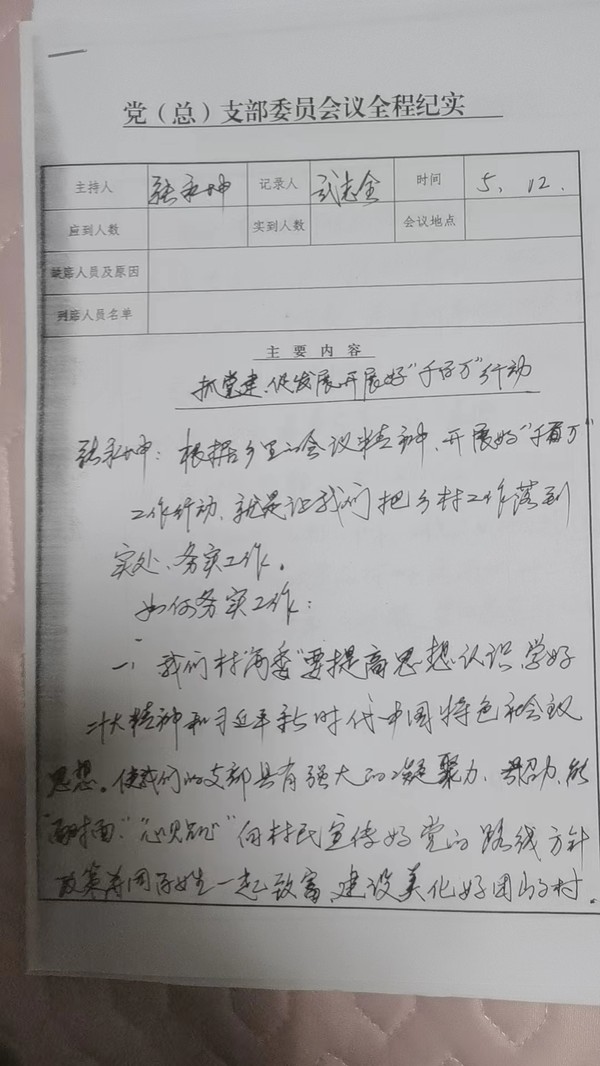 党（总）支部委员会议全程纪实
主持人 张永坤 记录人 武志全 时间 5.12.
应到人数 实到人数 会议地点
缺席人员及原因
列席人员名单
主要内容
抓党建、促发展、开展好“千百万”行动
张永坤：根据乡里的会议精神、开展好“千百万”
工作行动、就是让我们把乡村工作落到
实处、务实工作。
如何务实工作：
一、我们村“两委”要提高思想认识、学好
二十大精神和习近平新时代中国特色社会主义
思想。使我们的支部具有强大的凝聚力、号召力、能
“面对面”、“心贴心”向村民宣传好党的路线方针
政策，并同百姓一起致富、建设美化好团山子村。